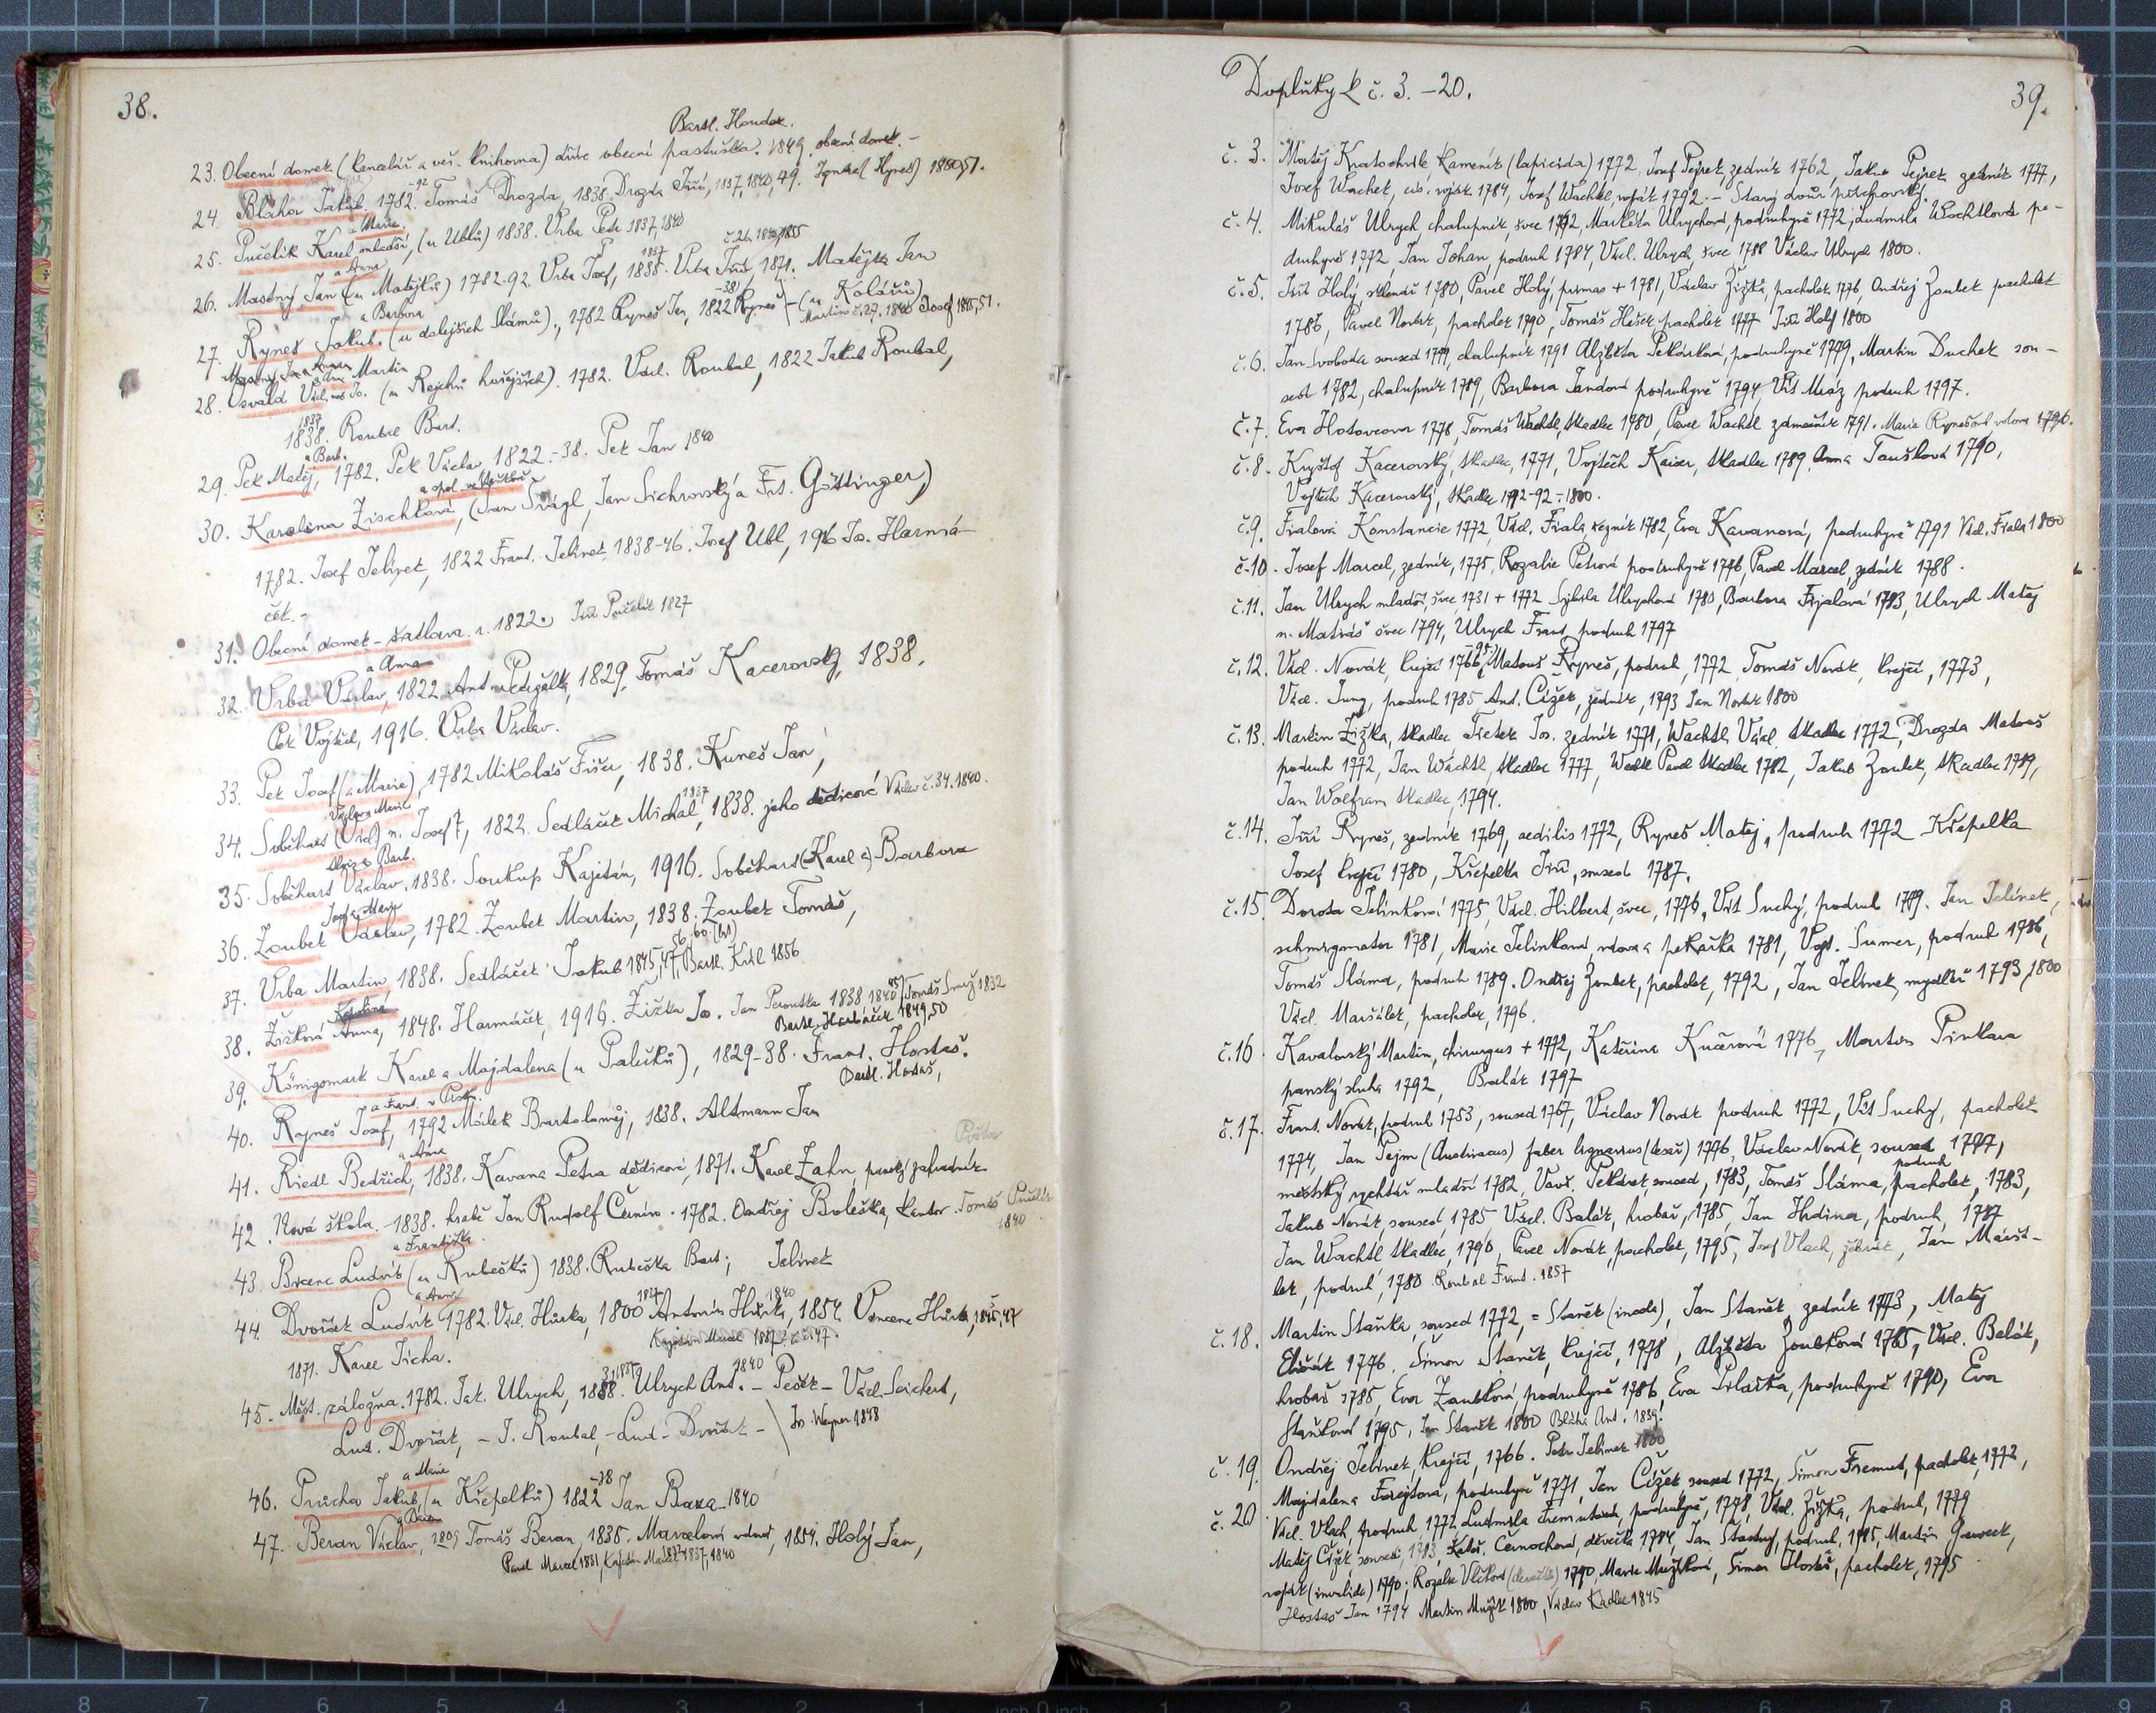 38.
Bartl. Houdek.
23. Obecní domek (kancelář a veř. knihovna) dříve obecní pastuška. 1849. obecní domek. -
24. Bláha Jakub. 1782.-92 Tomáš Drozda, 1838. Drozda Jiří, 1837, 1840, 49. Ignác (Hynek) 1850,51.
a Marie.
25. Pučelík Karel mladší, (u Ublů) 1838. Vrba Petr 1837, 1840
a Anna 1837 č.26. 1840, 1855
26. Mastný Jan (u Matějků) 1782-92. Vrba Josef, 1838. Vrba Jiří, 1871. Matějka Jan
a Barbora -38)
27. Ryneš Jakub. (u dolejších Slámů)., 1782 Ryneš Jan, 1822 Ryneš - (u Kolářů)
Martin č. 27, 1840 Josef 1845,51.
28. Osvald Václ. (u Rejchů hořejších). 1782. Václ. Roubal, 1822 Jakub Roubal,
1837
1838. Roubal Bart.
a Barb.
29. Pek Matěj, 1782. Pek Václav 1822.-38. Pek Jan 1840
30. Karolina Zischková, (Jan Švágl, Jan Sichrovský a Frt. Göttinger)
1782. Josef Jelínek, 1822 Frant. Jelínek, 1838-46. Josef Ubl, 1916 Jos. Harmá-
ček. -
31. Obecní domek - šatlava. r. 1822. Jiří Pučelík 1827
a Anna
32. Vrba Václav, 1822 Ant. 1829, Tomáš Kacerovský, 1838.
Pek Vojtěch, 1916. Vrba Václav.
33. Pek Josef (a Marie), 1782 Mikoláš Fišer, 1838. Kuneš Jan,
1837
34. Soběhart (Václ.) n. Josef, 1822. Sedláček Michal, 1838. jeho dědicové Václav č. 34. 1840.
35. Soběhart Václav. 1838. Soukup Kajetán, 1916. Soběhart (Karel a) Barbora
Josef a Marie
36. Zoubek Václav, 1782. Zoubek Martin, 1838. Zoubek Tomáš,
37. Vrba Martin, 1838. Sedláček Jakub 1845, 47, Bartl. Král 1856
38. Žižková Anna, 1848. Harmáček, 1916. Žižka Jo. Jan Peroutka 1838 1840 Tomáš 1832
Bartl. Harmáček 1849,50
39. Königsmark Karel a Majdalena (u Paličků), 1829-38. Frant. Hostaš.
Bartl. Hostaš,
40. Ryneš Josef, 1792 Mólek Bartoloměj, 1838. Altmann Jan
a Anna
41. Riedl Bedřich, 1838. Kavana Petra dědicové, 1871. Karel Zahn, panský zahradník
42. Nová škola. - 1838. hrabě Jan Rudolf Černín. 1782. Ondřej Boleška, kantor. Tomáš Pučelík
1840
a Františka
43. Brcenc Ludvík (u Rubešků) 1838. Rubeška Bart; Jelínek
a Anna 1837 1840
44. Dvořák Ludvík 1782. Václ. Hůrka, 1800 Antonín Hůrka, 1854. Vincenc Hůrka, 1845,47
1871. Karel Ticha.
45. Měst. záložna. 1782. Jak. Ulrych, 1838. Ulrych Ant. - Pešek - Václ. Seichert,
Lud. Dvořák, - J. Roubal, - Lud. Dvořák - Jos. Wagner 1848
a Marie
46. Průcha Jakub, (u Křepelků) 1822-38 Jan Baxa 1840
47. Beran Václav, 1809 Tomáš Beran, 1838. Marcelová vdova, 1854. Holý Jan,
Pavel Marcel 1831, Kajetán Marcel 1837, 1840
39.
Doplňky k č. 3. - 20.
č. 3. Matěj Kratochvíle kameník (lapicida) 1772. Josef Pejrek, zedník 1762, Jakub Pejrek zedník 1777,
Josef Wachtl, cís. voják 1784, Josef Wachtl, voják 1792. - Starý dvůr
č. 4. Mikuláš Ulrych, chalupník, švec 1772, Markéta Ulrychová, podruhyně 1772, Ludmila Wachtlová po-
druhyně 1772, Jan Johan, podruh 1784, Václ. Ulrych, švec 1788 Václav Ulrych 1800.
č. 5. Jiří Holý, sklenář 1780, Pavel Holý, primas + 1781, Václav Žižka, pacholek 1776, Ondřej Zoubek pacholek
1786, Pavel Novák, pacholek 1790, Tomáš Hašek, pacholek 1777 Jiří Holý 1800
č. 6. Jan Svoboda soused 1779, chalupník 1791 Alžběta Pekárková, podruhyně 1779, Martin Duchek sou-
sed 1782, chalupník 1789, Barbora Jandová podruhyně 1794 Vít Mráz podruh 1797.
č. 7. Eva Hotovcova 1778, Tomáš Wachtl, tkadlec 1780, Pavel Wachtl 1791. Marie Rynešová vdova 1796.
č. 8. Kryštof Kacerovský, tkadlec, 1771, Vojtěch Kaiser, tkadlec 1789, Anna Toušlová 1790,
Vojtěch Kacerovský, tkadlec 1792-92-1800.
č. 9. Fialová Konstancie 1772, Václ. Fiala, řezník 1782, Eva Kavanová, podruhyně 1791 Václ. Fiala 1800
č. 10. Josef Marcel, zedník, 1775, Rozalie Petrová podruhyně 1776, Pavel Marcel, zedník 1788.
č. 11. Jan Ulrych mladší, švec, 1731 + 1772 Sybila Ulrychová 1780, Barbora Fijalová 1783, Ulrych Matěj
n. Matiáš švec 1794, Ulrych Frant. podruh 1797
č. 12. Václ. Novák, krejčí 1766, Matouš Ryneš, podruh, 1772, Tomáš Novák, krejčí, 1773,
Václ. Jung, podruh 1785 Ant. Čížek, zedník, 1793 Jan Novák 1800
č. 13. Martin Žižka, tkadlec Fictek Jos. zedník 1771, Wachtl Václ. tkadlec 1772, Drozda Matouš
podruh 1772, Jan Wachtl, tkadlec 1777, Pavel tkadlec 1782, Jakub Zoubek, tkadlec 1789,
Jan Wolfram tkadlec, 1794.
č. 14. Jiří Ryneš, zedník 1769, aedilis 1772, Ryneš Matěj, podruh 1772 Křepelka
Josef krejčí 1780, Křepelka Jiří, soused 1787.
č. 15. Dorota Jelínková 1775, Václ. Hilbert, švec, 1776, Vít Suchý, podruh 1779. Jan Jelínek,
schmigmator 1781, Marie Jelínková, vdova a pekařka 1781, Vojt. Sumer, podruh 1786,
Tomáš Sláma, podruh 1789. Ondřej Zoubek, pacholek, 1792, Jan Jelínek, mydlář 1793, 1800
Václ. Maršálek, pacholek, 1796.
č. 16. Kavalovský Martin, chirurgus + 1772, Kateřina Kučerová 1776, Martin Pinkava
panský sluha 1792, Balák 1797
č. 17. Frant. Novák, podruh 1753, soused 1767, Václav Novák podruh 1772, Vít Suchý, pacholek
1774, Jan Pejm (Austriacus) faber lignarius (tesař) 1776, Václav Novák, soused 1777,
městský rychtář mladší 1782, Vavř. Pekárek, soused, 1783, Tomáš Sláma, podruh pacholek, 1783,
Jakub Novák, soused, 1785, Václ. Balák, hrobař, 1785, Jan Hrdina, podruh, 1787
Jan Wachtl tkadlec, 1790, Pavel Novák, pacholek, 1795, Josef Vlach, žebrák, Jan Maršá-
lek, podruh, 1780. Roubal Frant. 1857
č. 18. Martin Staňka, soused 1772, = Staněk (inada), Jan Staněk, zedník 1773, Matěj
1776, Šimon Staněk, krejčí, 1778, Alžběta Zoubková 1785, Václ. Balák,
hrobař 1785, Eva Zoubková, podruhyně 1786, Eva podruhyně 1790, Eva
Staňková 1795, Jan Staněk 1800 Bláha Ant. 1839.
č. 19. Ondřej Jelínek, krejčí, 1766. Petr Jelínek 1800
č. 20 Majdalena Forejtová, podruhyně 1771, Jan Čížek soused 1772, Šimon Fremut, pacholek, 1772,
Václ. Vlach, podruh, 1772 Ludmila Fremutová, podruhyně, 1778, Václ. Žižka, podruh, 1779
Matěj Čížek, soused, 1783, Černochová, děvečka 1784, Jan Šťastný, podruh, 1785, Martin
voják (invalida) 1790. Rozalie Vlčková (děvečka) 1790, Marie Mužíková, Šimon Hostaš, pacholek, 1795
Hostaš Jan 1794 Martin Mužík 1800, Václav Kadlec 1845